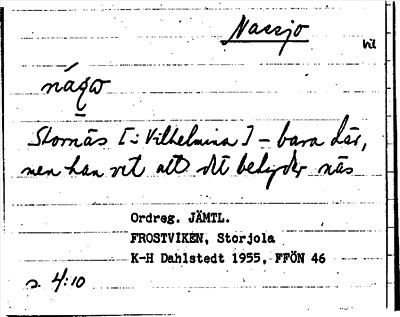 Nassjo
hil
nágo
Stornäs [i Vilhelmina] – bara där,
men han vet att det betyder näs
Ordreg. JÄMTL.
FROSTVIKEN, Storjola
K-H Dahlstedt 1955, FFÖN 46
s. 4:10